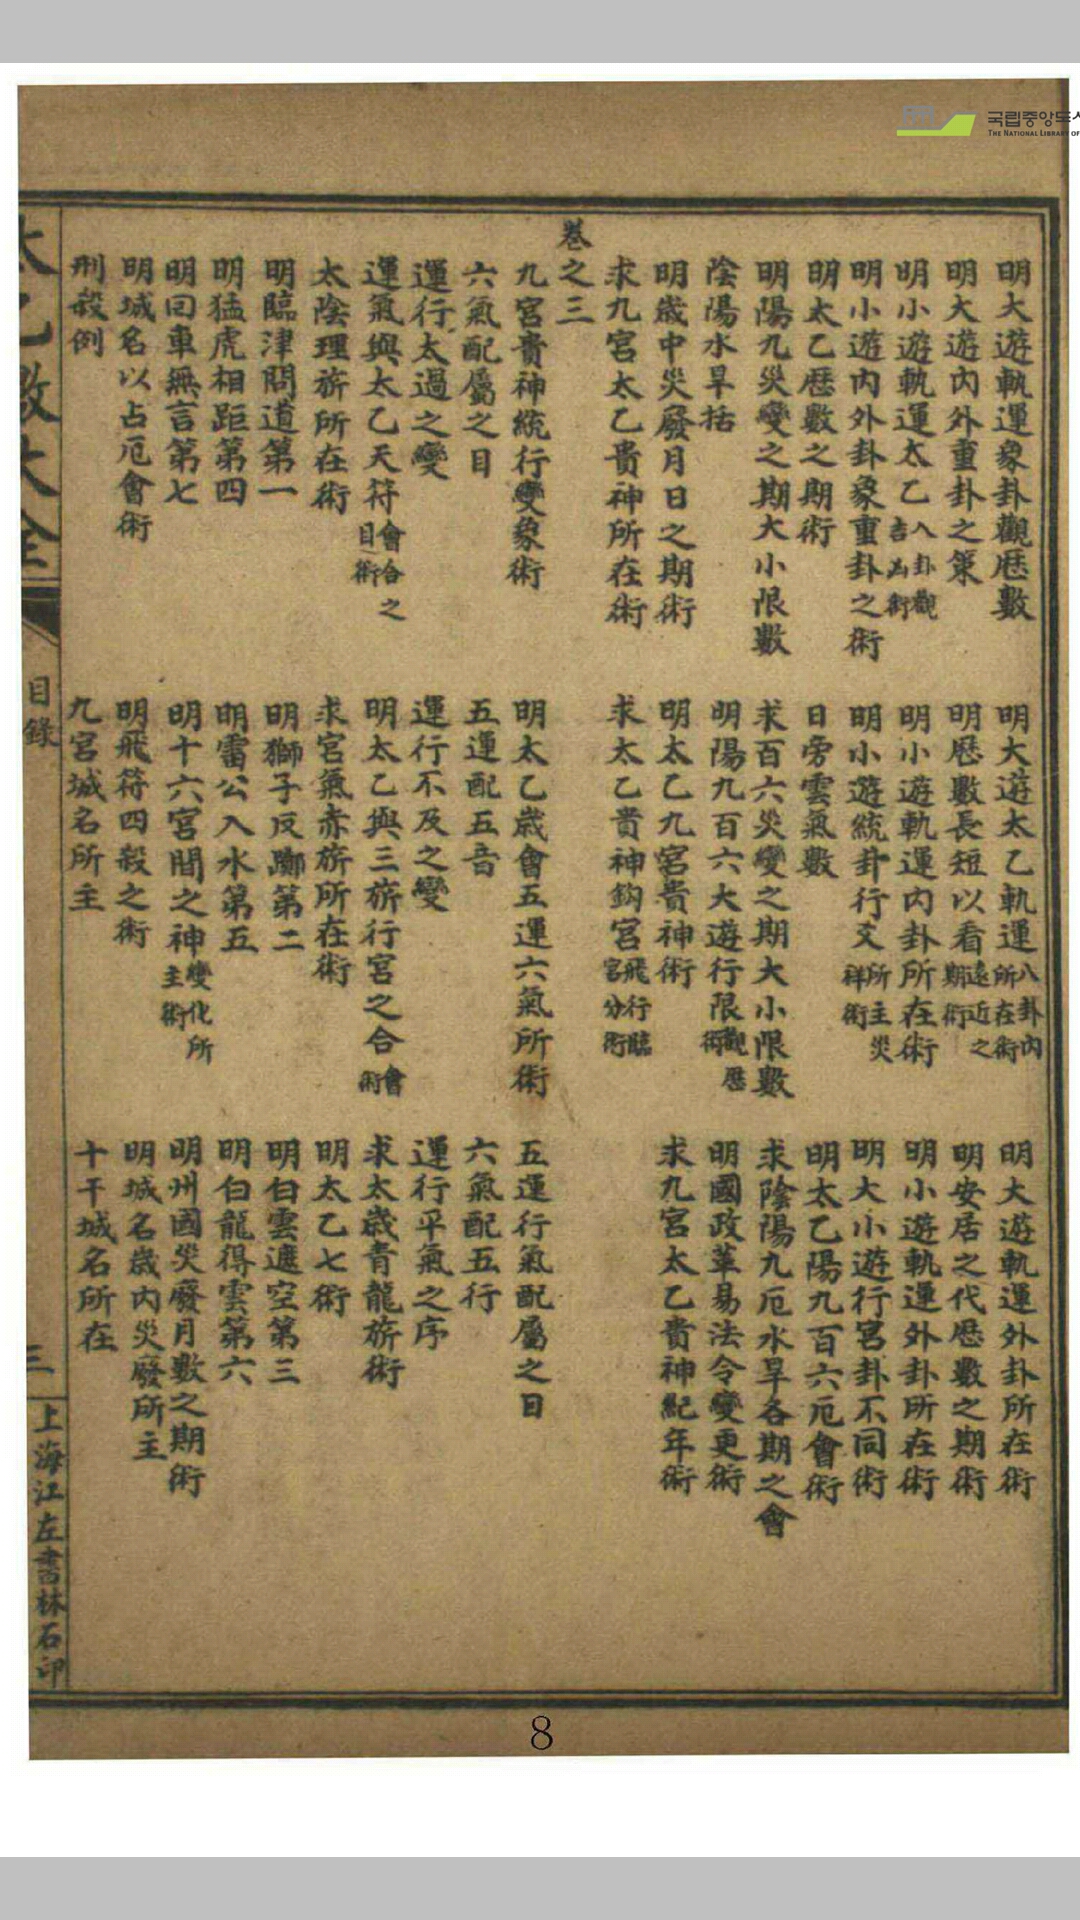 국립중앙도서
THE NATIONAL LIBRARY OF
明大遊軌運象卦觀歷數
明大遊太乙軌運八卦內所在術
明大遊軌運外卦所在術
明大遊內外重卦之策
明歷數長短以看遠近之期術
明安居之代歷數之期術
明小遊軌運太乙八卦觀吉凶術
明小遊軌運內卦所在術
明小遊軌運外卦所在術
明小遊內外卦象重卦之術
明小遊統卦行爻所主災祥術
明大小遊行宮卦不同術
明太乙歷數之期術
日旁雲氣數
明太乙陽九百六厄會術
明陽九災變之期大小限數
求百六災變之期大小限數
求陰陽九厄水旱各期之會
陰陽水旱括
明陽九百六大遊行限觀歷術
明國政革易法令變更術
明歲中災廢月日之期術
明太乙九宮貴神術
求九宮太乙貴神紀年術
求九宮太乙貴神所在術
求太乙貴神鈎宮飛行臨宮分術
卷之三
九宮貴神統行變象術
明太乙歲會五運六氣所術
五運行氣配屬之日
六氣配屬之目
五運配五音
六氣配五行
運行太過之變
運行不及之變
運行平氣之序
運氣與太乙天符會合之目術
明太乙與三旂行宮之合會術
求太歲青龍旂術
太陰理旂所在術
求宮氣赤旂所在術
明太乙七術
明臨津問道第一
明獅子反躑第二
明白雲遮空第三
明猛虎相距第四
明雷公入水第五
明白龍得雲第六
明回車無言第七
明十六宮間之神變化所主術
明州國災廢月數之期術
明城名以占厄會術
明飛符四殺之術
明城名歲內災廢所主
刑殺例
九宮城名所主
十干城名所在
太乙數大全
目錄
三
上海江左書林石印
8